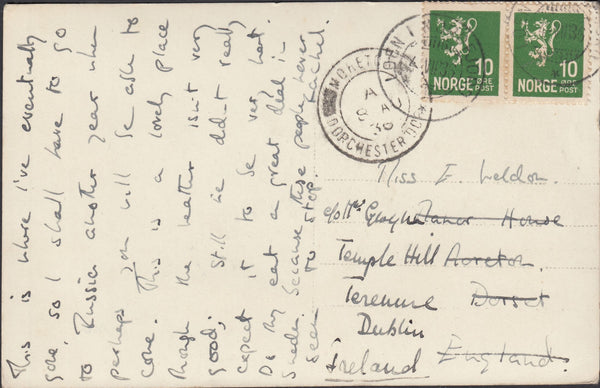 This is where I've eventually
gone, so I shall have to go
to Russia another year when
perhaps you will be able to
come. This is a lovely place
though the weather isn't very
good; still we didn't really
expect it to be very hot.
Do they eat a great deal in
Sweden because these people never
seem to stop. Rachel.
NORGE 10 ØRE POST
NORGE 10 ØRE POST
MORETON
A
9 AU
36
DORCHESTER DO
VOSS
Miss E. Weldon
c/o Mrs Manor House
Temple Hill Moreton
Terenure Dorset
Dublin
Ireland England.